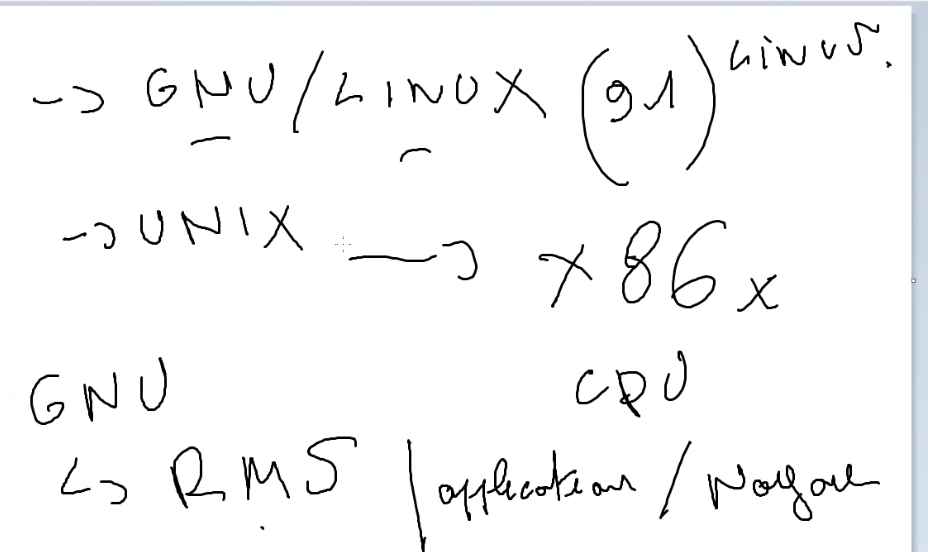 → GNU/LINUX (91) LINUS.
→ UNIX → x86x
GNU CPU
↳ RMS | application / Noyau